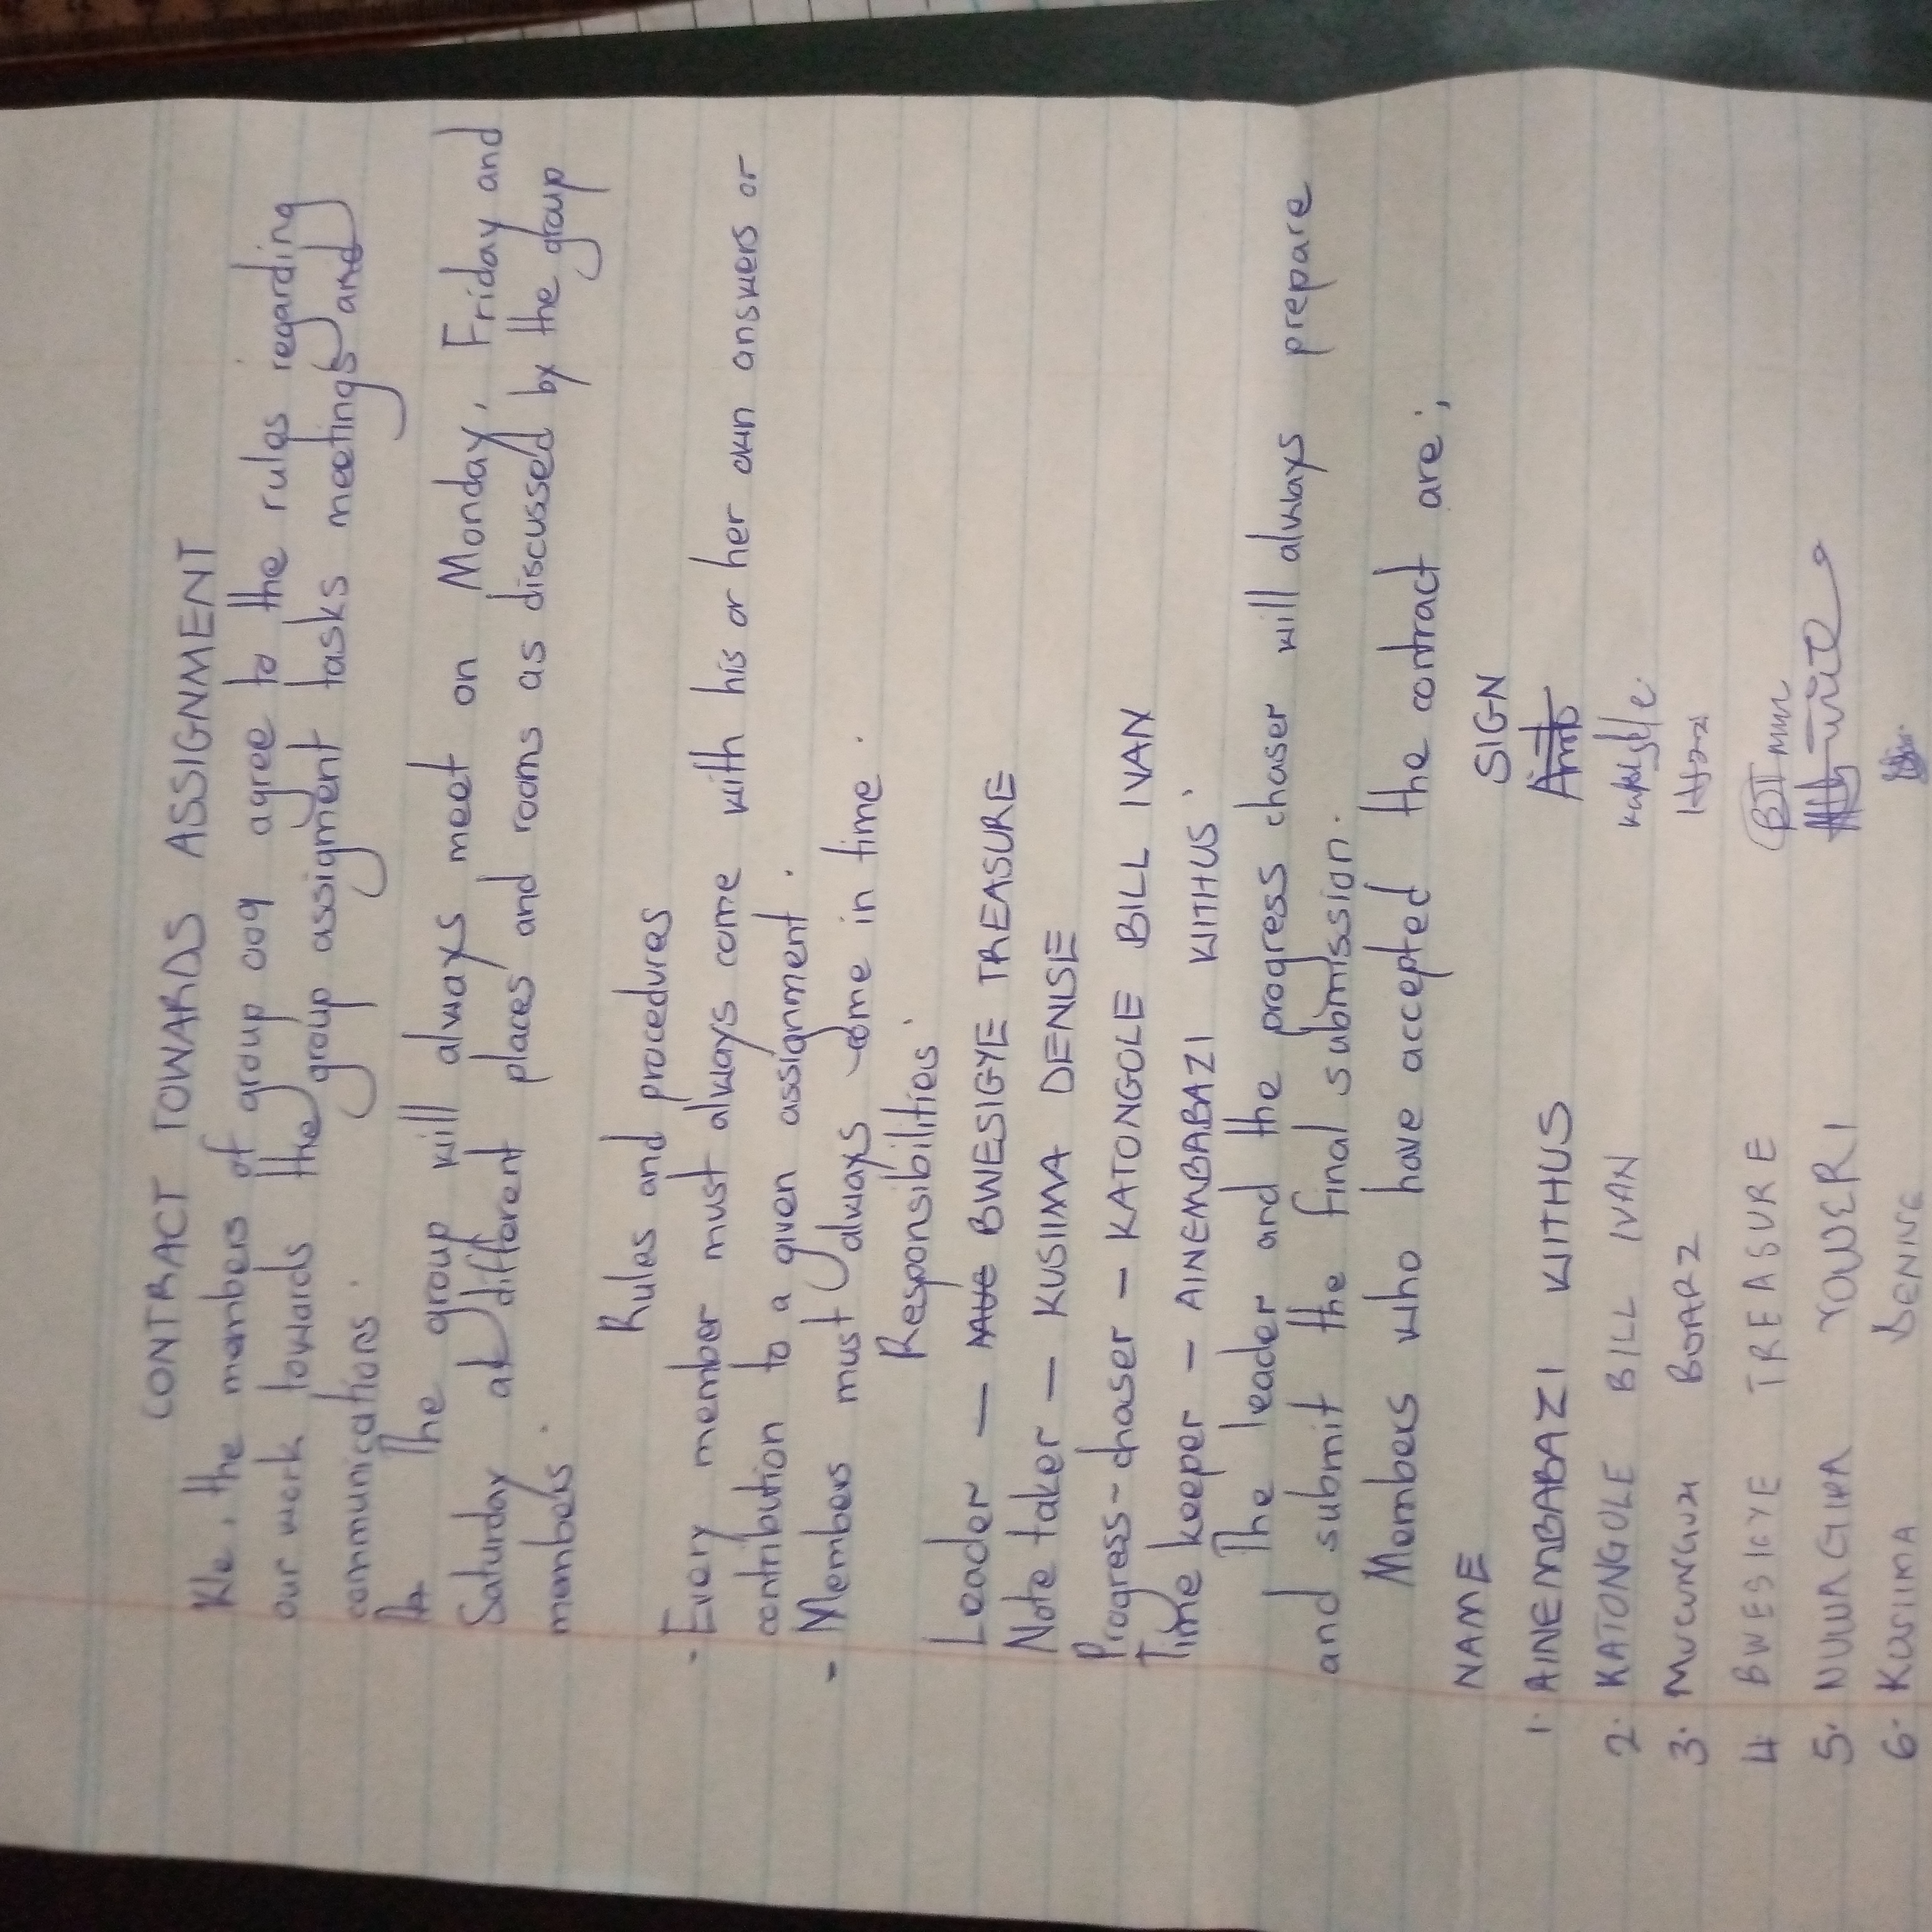 CONTRACT TOWARDS ASSIGNMENT
We, the members of group 009 agree to the rules regarding
our work towards the group assigment tasks meetings and
communications.
The group will always meet on Monday, Friday and
Saturday at different places and rooms as discussed by the group
members.
Rules and procedures
- Every member must always come with his or her own answers or
contribution to a given assignment.
- Members must always come in time.
Responsibilities
Leader — BWESIGYE TREASURE
Note taker — KUSIIMA DENISE
Progress-chaser – KATONGOLE BILL IVAN
Time keeper – AINEMBABAZI WITHUS
The leader and the progress chaser will always prepare
and submit the final submission.
Members who have accepted the contract are;
NAME SIGN
1. AINEMBABAZI WITHUS
2. KATONGOLE BILL IVAN
3. BOARZ
4 BWESIGYE TREASURE BT
5. NUWAGIRA YOWERI
6. KUSIIMA DENISE